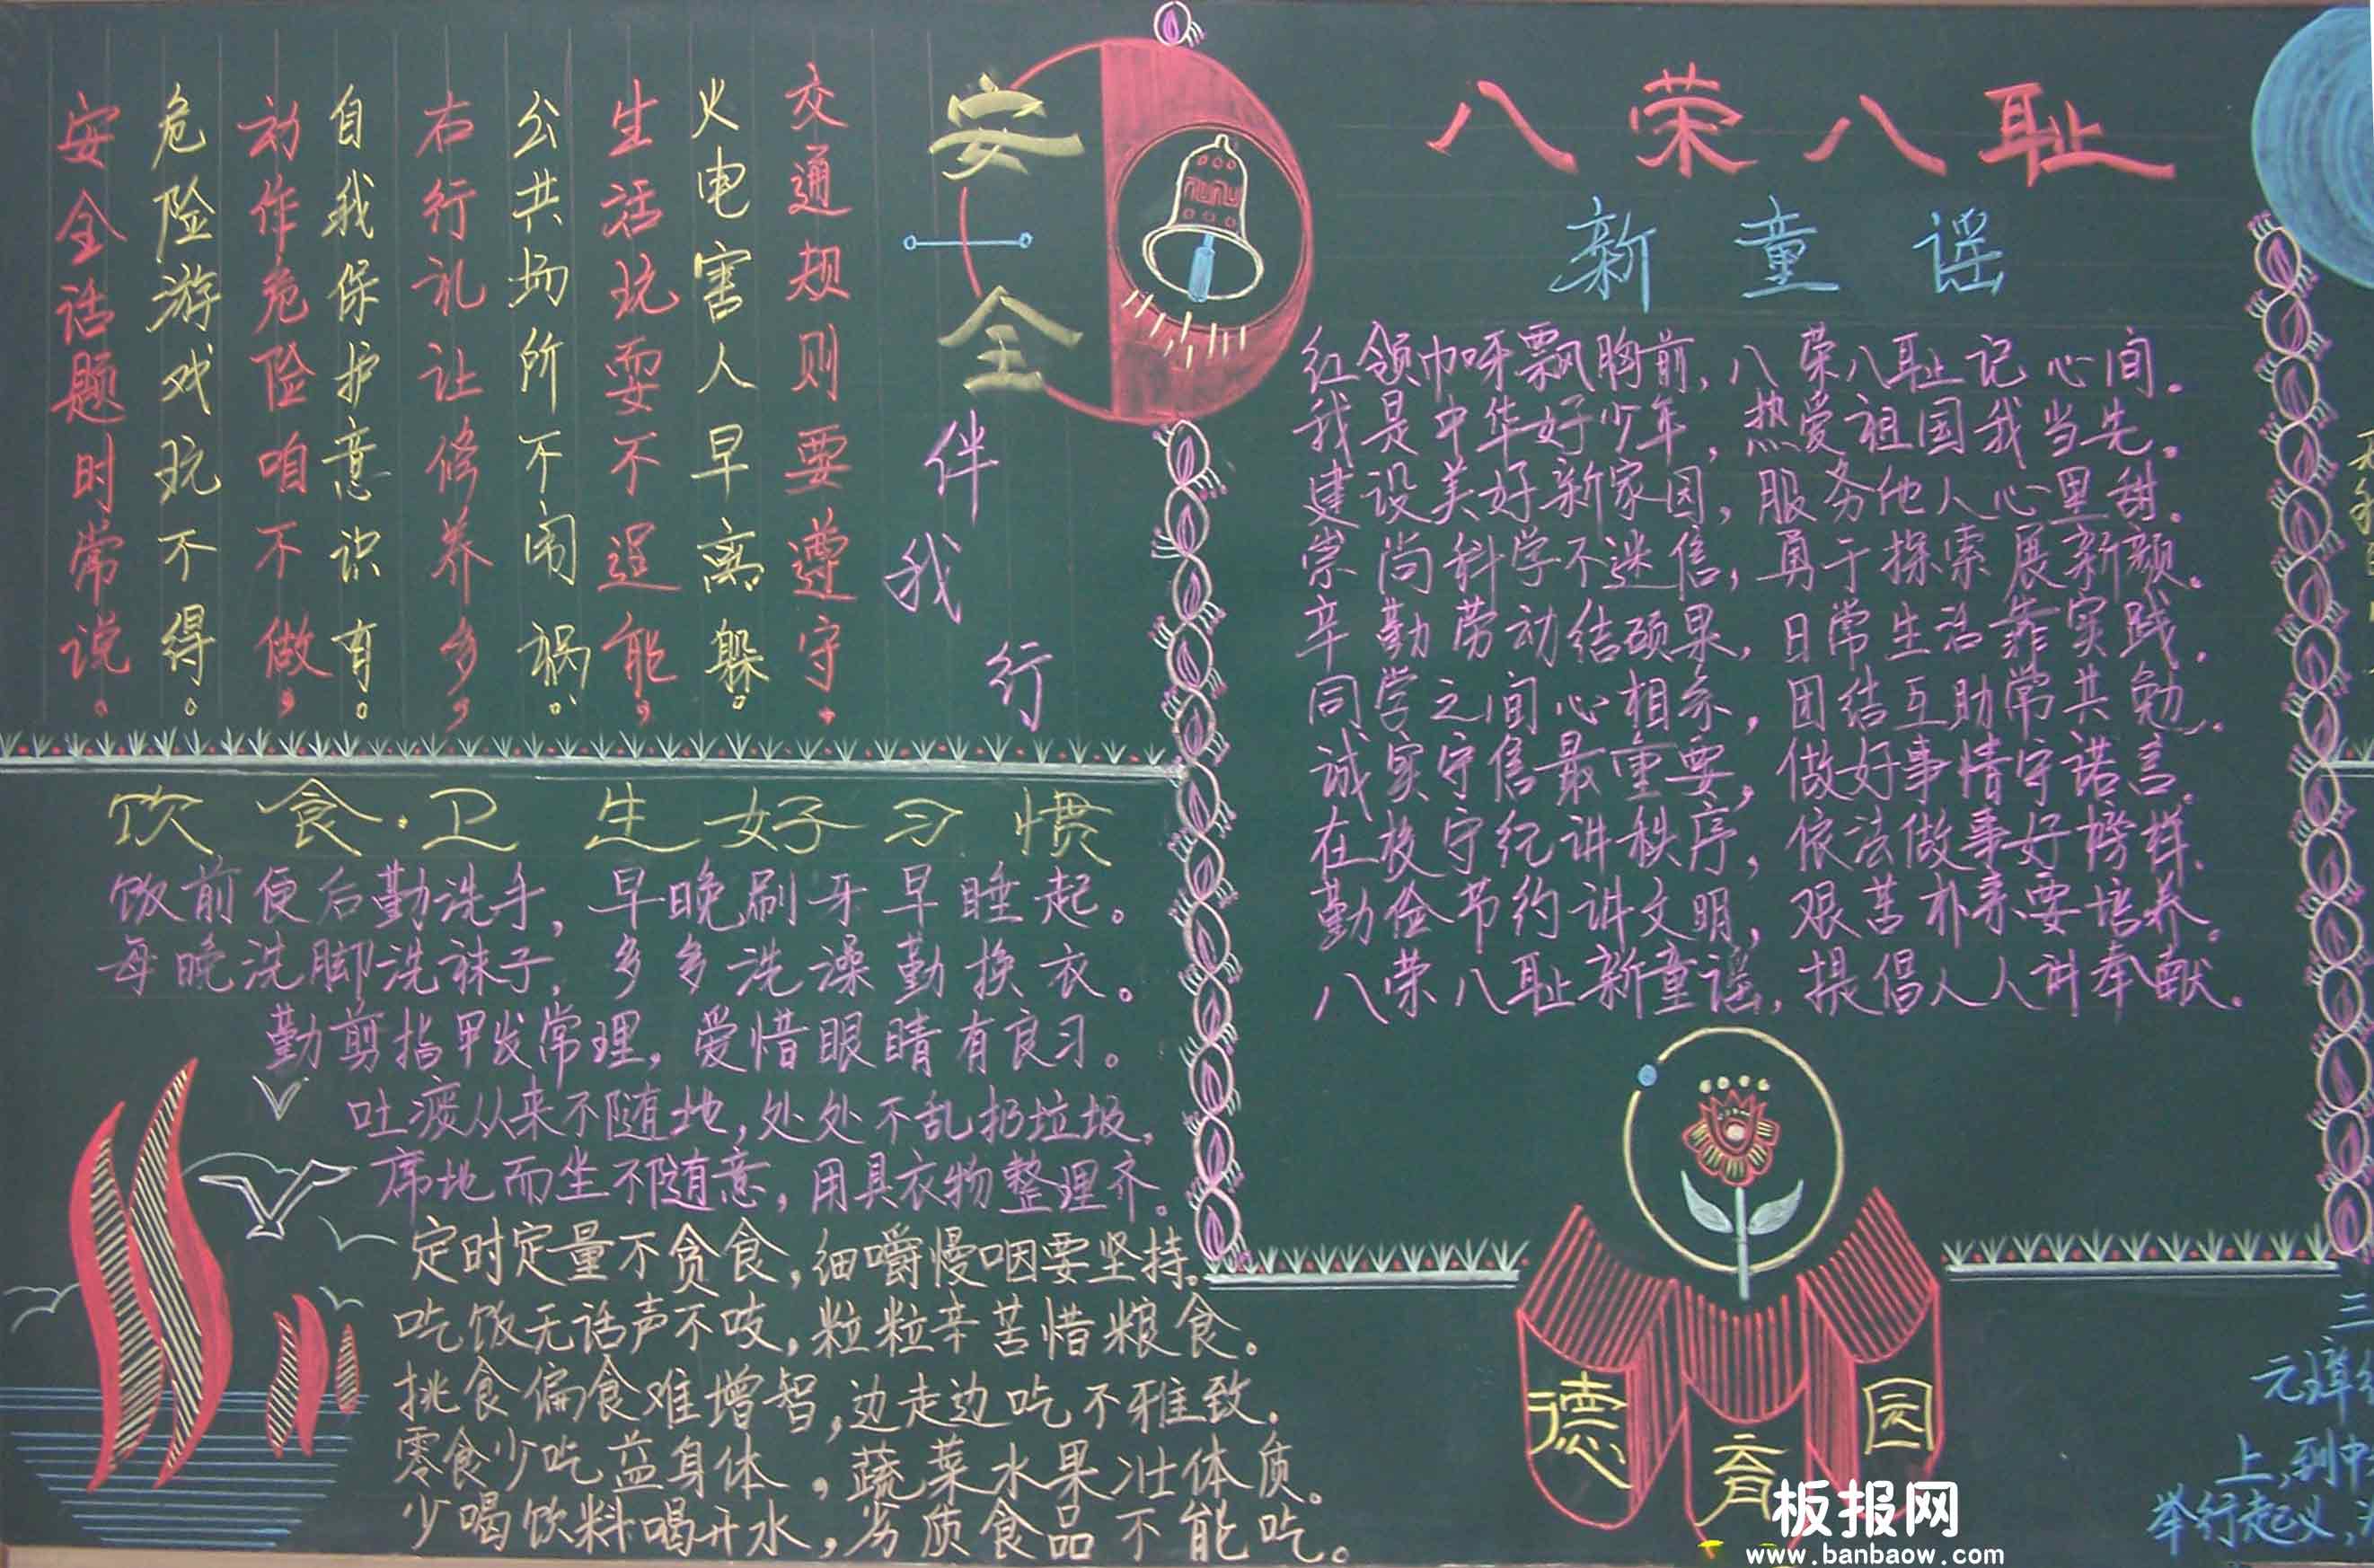 安全
伴我行
交通规则要遵守，
火电害人早离躲。
生活玩耍不逞能，
公共场所不闹祸。
右行礼让修养多，
自我保护意识有。
动作危险咱不做，
危险游戏玩不得。
安全话题时常说。
饮食·卫生好习惯
饭前便后勤洗手，早晚刷牙早睡起。
每晚洗脚洗袜子，多多洗澡勤换衣。
勤剪指甲发常理，爱惜眼睛有良习。
吐痰从来不随地，处处不乱扔垃圾，
席地而坐不随意，用具衣物整理齐。
定时定量不贪食，细嚼慢咽要坚持。
吃饭无话声不吱，粒粒辛苦惜粮食。
挑食偏食难增智，边走边吃不雅致。
零食少吃益身体，蔬菜水果壮体质。
少喝饮料喝开水，劣质食品不能吃。
八荣八耻
新童谣
红领巾呀飘胸前，八荣八耻记心间。
我是中华好少年，热爱祖国我当先。
建设美好新家园，服务他人心里甜。
崇尚科学不迷信，勇于探索展新颜。
辛勤劳动结硕果，日常生活靠实践。
同学之间心相亲，团结互助常共勉。
诚实守信最重要，做好事情守诺言。
在校守纪讲秩序，依法做事好榜样。
勤俭节约讲文明，艰苦朴素要培养。
八荣八耻新童谣，提倡人人讲奉献。
德育园
三
元璋
上，到中
举行起义，
板报网
www.banbaow.com